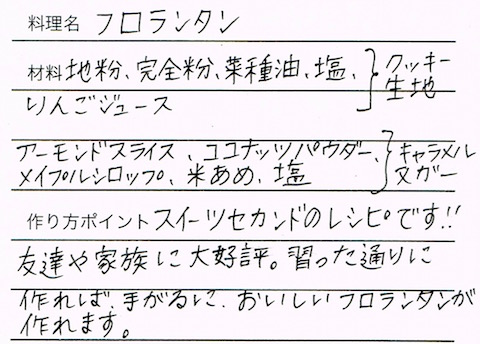 料理名 フロランタン
材料 地粉、完全粉、菜種油、塩、
りんごジュース
クッキー
生地
アーモンドスライス、ココナッツパウダー、
メイプルシロップ、米あめ、塩
キャラメル
ヌガー
作り方ポイント スイーツセカンドのレシピです!!
友達や家族に大好評。習った通りに
作れば、手がるに、おいしいフロランタンが
作れます。